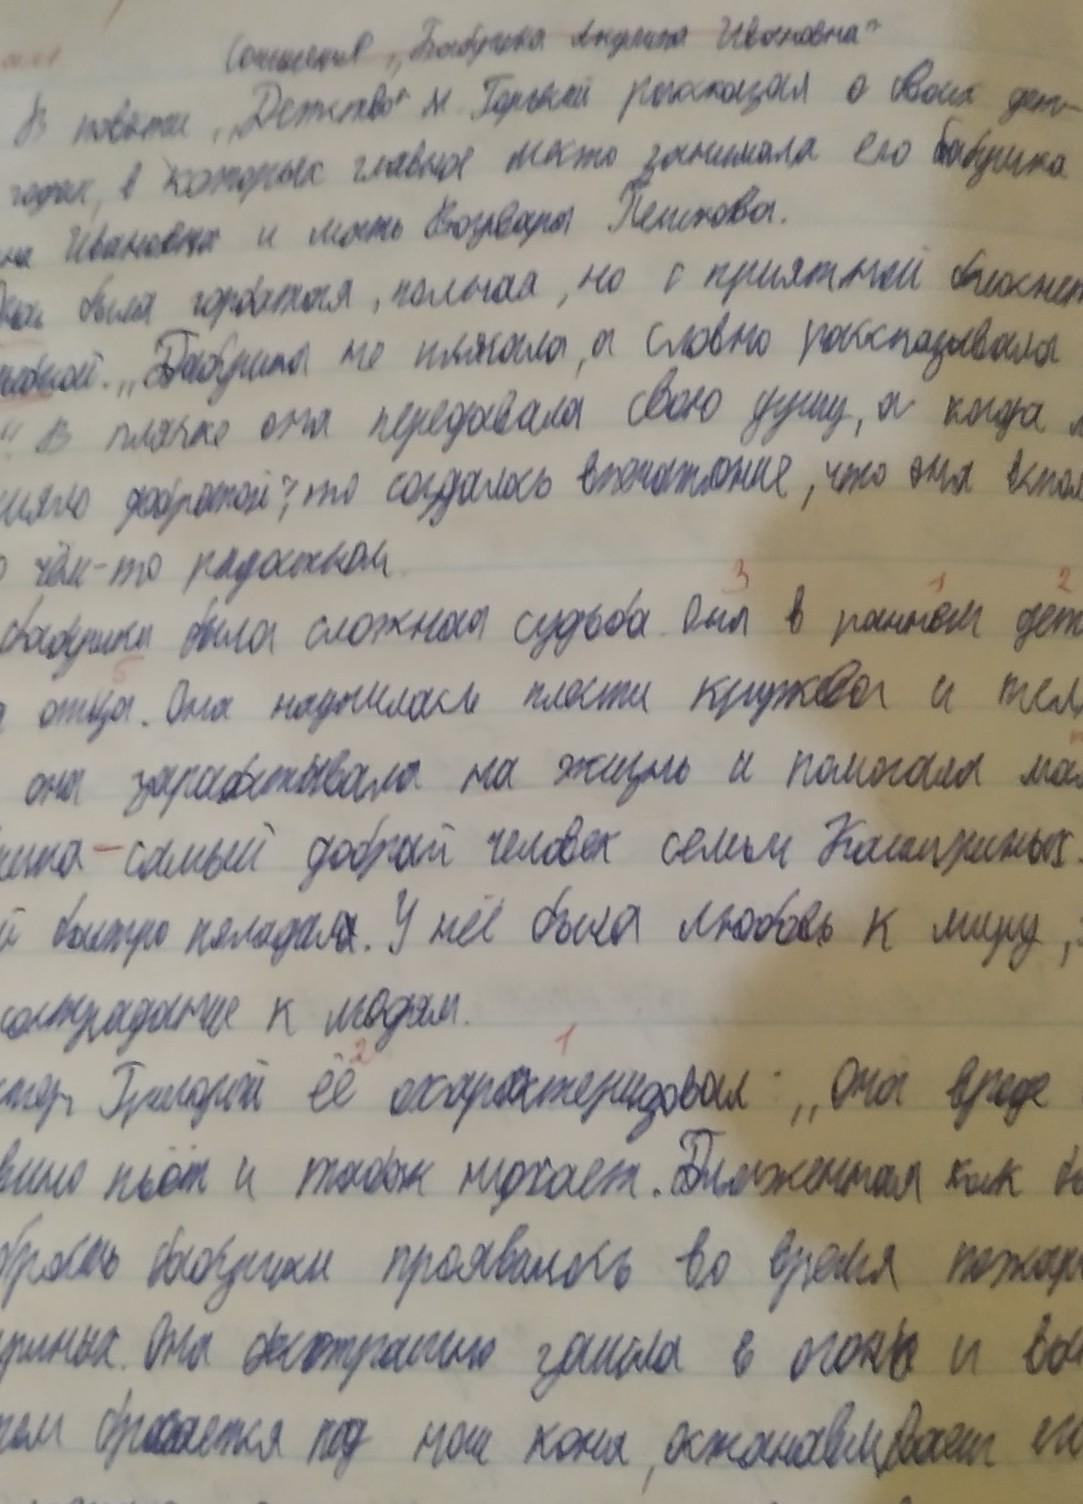 Сочинения „Бабушка Акулина Ивановна"
В повести „Детство" М. Горький рассказал о своих дет-
годах, в которых главное место занимала его бабушка
на Ивановна и мать Варвара Пешкова.
Она была горбатая, полная, но с приятной
„Бабушка не плясала, а словно рассказывала
" В пляске она передавала свою душу, а когда
сияло добротой", то создалось впечатление, что она вспом
о чём-то радостном.
3 1 2
бабушки была сложная судьба. Она в раннем дет
5
отца. Она научилась плести кружева и
она зарабатывала на жизнь и помогала ма
самый добрый человек семьи Кашириных.
й быстро поладила. У неё была любовь к миру,
сострадание к людям.
2 1
Григорий её охарактеризовал: „Она вроде
вино пьёт и табак нюхает. Блаженная как бы
бабушки проявилось во время пожара
Она бесстрашно зашла в огонь и
бросается под ноги коня, останавливает его